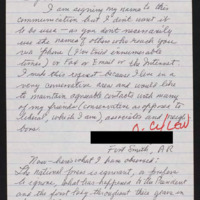 I am signing my name to this
communication but I don't want it
to be use — as you don't necessarily
use the names of others who reach you
via phone (I've tried innumerable
times) or Fax or Email or the Internet.
I make this request because I live in a
very conservative area and would like
to maintain agreeable contact with many
of my friends (conservative as oppose to
liberal, which I am), associates and
Fort Smith, AR
Now - here's what I am
The national focus is
ignore, what has happened to the President
and the first lady throughout their years in